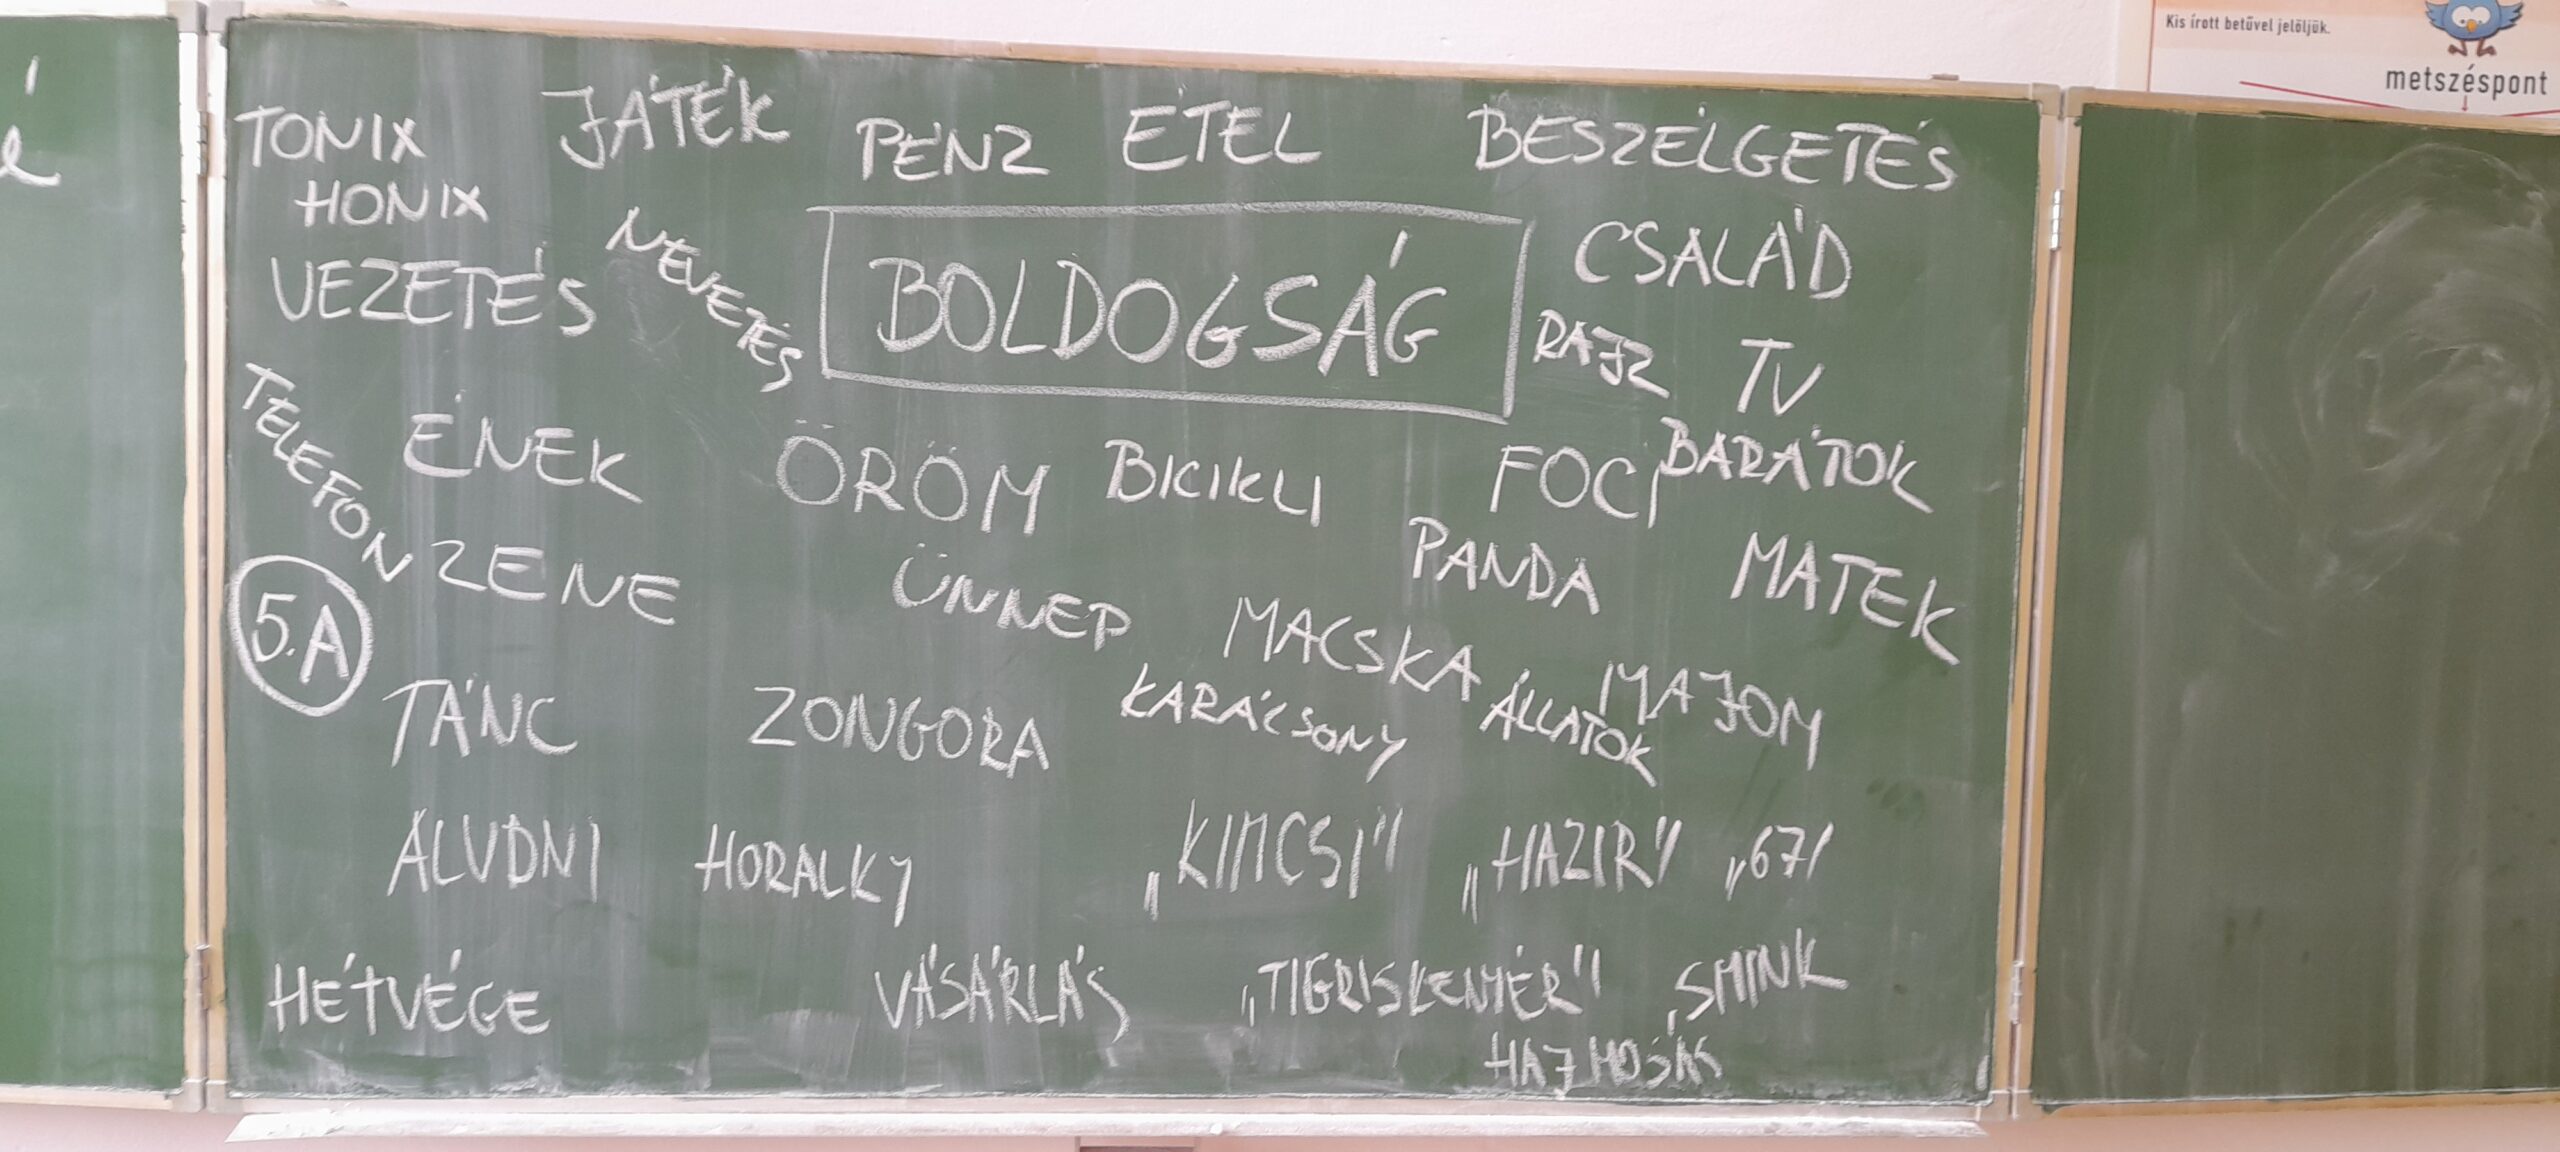 Kis írott betűvel jelöljük.
metszéspont
é
TONIX JÁTÉK PÉNZ ÉTEL BESZÉLGETÉS
HONIX
VEZETÉS NEVETÉS BOLDOGSÁG CSALÁD
RAJZ TV
TELEFON ÉNEK ÖRÖM BICIKLI FOCI BARÁTOK
ZENE ÜNNEP PANDA MATEK
5.A
MACSKA
TÁNC ZONGORA KARÁCSONY ÁLLATOK MAJOM
ALUDNI HORALKY „KIMCSI” „HAZIR” „67”
HÉTVÉGE VÁSÁRLÁS „TIGRISKENYÉR” SMINK
HAJMOSÁS